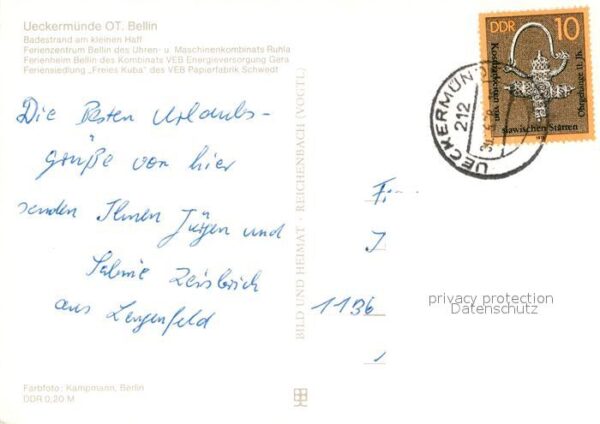 Ueckermünde OT. Bellin
Badestrand am kleinen Haff
Ferienzentrum Bellin des Uhren- u. Maschinenkombinats Ruhla
Ferienheim Bellin des Kombinats VEB Energieversorgung Gera
Feriensiedlung „Freies Kuba“ des VEB Papierfabrik Schwedt
Die Besten Urlaubs-
grüße von hier
senden Ihnen Jürgen und
Sabine Zeisbrich
aus Lengenfeld
Farbfoto: Kampmann, Berlin
DDR 0,20 M
BILD UND HEIMAT · REICHENBACH (VOGTL)
DDR 10
Kostbarkeiten von
slawischen Stätten
Ohrgehänge 11. Jh.
UECKERMÜNDE
212
Fr
J
1136
privacy protection
Datenschutz